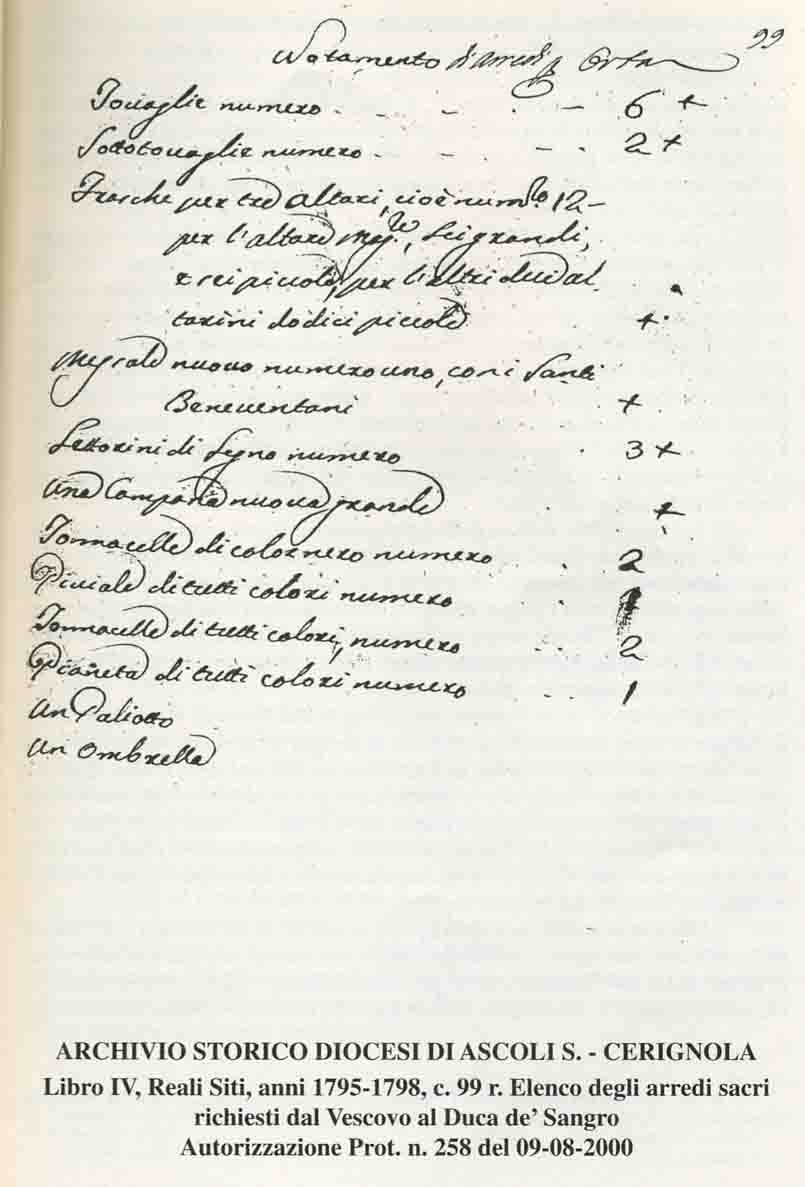 99
Notamento d'arredi p Orta
Tovaglie numero - - - . - 6 +
Sottotovaglie numero - - . - . 2 +
Frasche per tre altari, cioè num.o 12 -
per l'altare Mag.re, sei grandi,
e sei piccole, per l'altri due al
tarini dodici piccole +
Messale nuovo numero uno, con i Santi
Beneventani +
Lettorini di legno numero . 3 +
Una Campana nuova grande +
Tonnacelle di color nero numero . 2
Piviale di tutti colori numero . 1
Tonnacelle di tutti colori, numero - . 2
Pianeta di tutti colori numero - - 1
Un Paliotto
Un Ombrella
ARCHIVIO STORICO DIOCESI DI ASCOLI S. - CERIGNOLA
Libro IV, Reali Siti, anni 1795-1798, c. 99 r. Elenco degli arredi sacri
richiesti dal Vescovo al Duca de' Sangro
Autorizzazione Prot. n. 258 del 09-08-2000